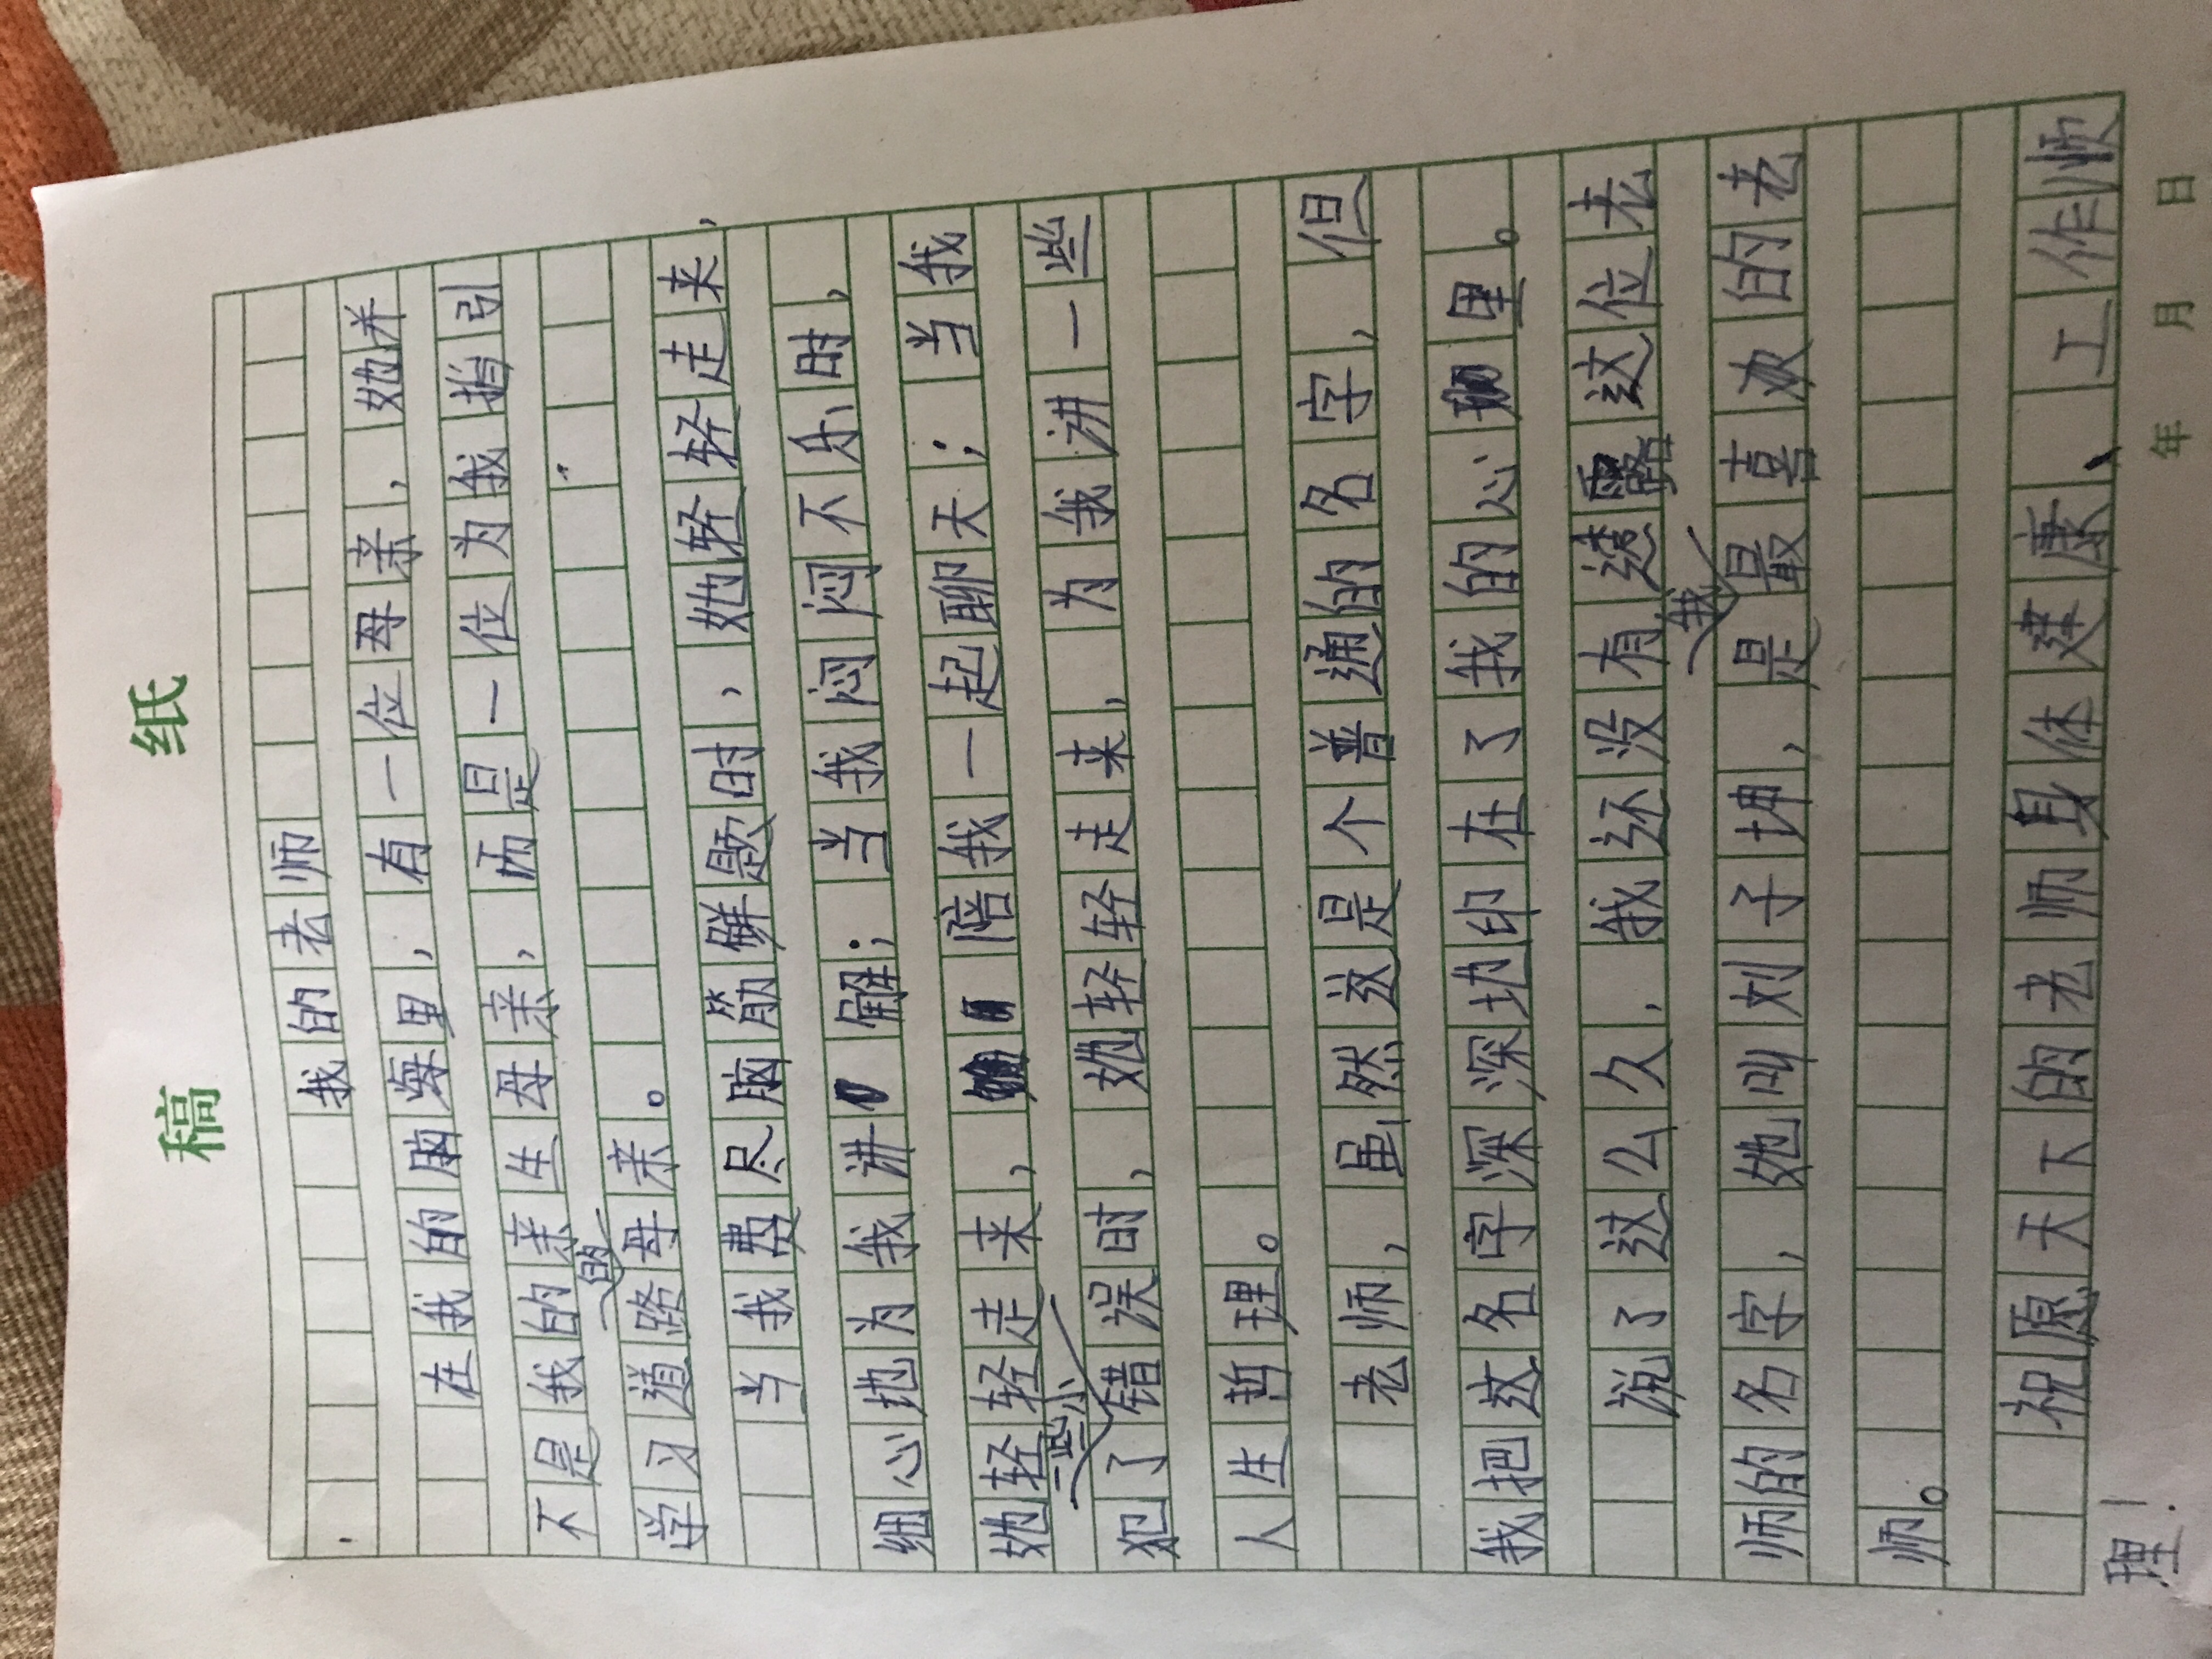 稿 纸
我的老师
在我的脑海里，有一位母亲，她并
不是我的亲生母亲，而是一位为我指引
学习道路的母亲。
当我费尽脑筋解题时，她轻轻走来，
细心地为我讲解；当我闷闷不乐时，
她轻轻走来，陪我一起聊天；当我
犯了一些小错误时，她轻轻走来，为我讲一些
人生哲理。
老师，虽然这是个普通的名字，但
我把这名字深深地印在了我的心里。
说了这么久，我还没有透露这位老
师的名字，她叫刘子玥，是我最喜欢的老
师。
祝愿天下的老师身体健康、工作顺
理！
年 月 日